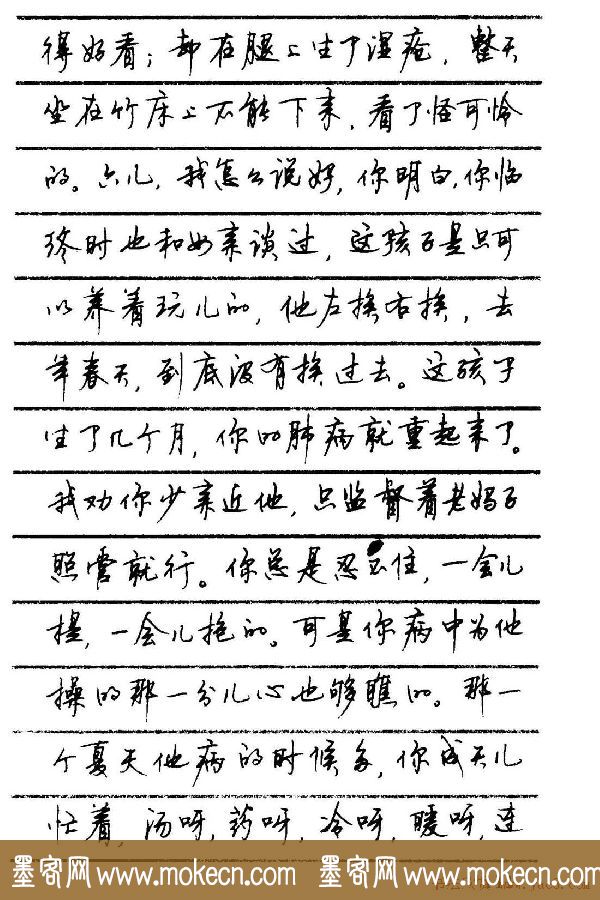 得好看；却在腿上生了湿疮，整天
坐在竹床上不能下来，看了怪可怜
的。六儿，我怎么说好，你明白，你临
终时也和母亲谈过，这孩子是只可
以养着玩儿的，他左挨右挨，去
年春天，到底没有挨过去。这孩子
生了几个月，你的肺病就重起来了。
我劝你少亲近他，只监督着老妈子
照管就行。你总是忍不住，一会儿
提，一会儿抱的。可是你病中为他
操的那一分儿心也够瞧的。那一
个夏天他病的时候多，你成天儿
忙着，汤呀，药呀，冷呀，暖呀，连
墨客网 www.mokecn.com 墨客网 www.mokecn.com